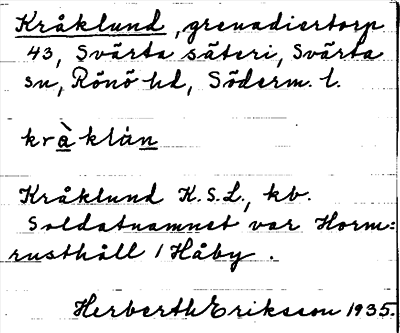 Kråklund, grenadiertorp
43, Svärta säteri, Svärta
sn, Rönö hd, Söderm. l.
kràklån
Kråklund K.S.L., kb.
Soldatnamnet var Horm:
rusthåll 1 Håby.
Herberth Eriksson 1935.